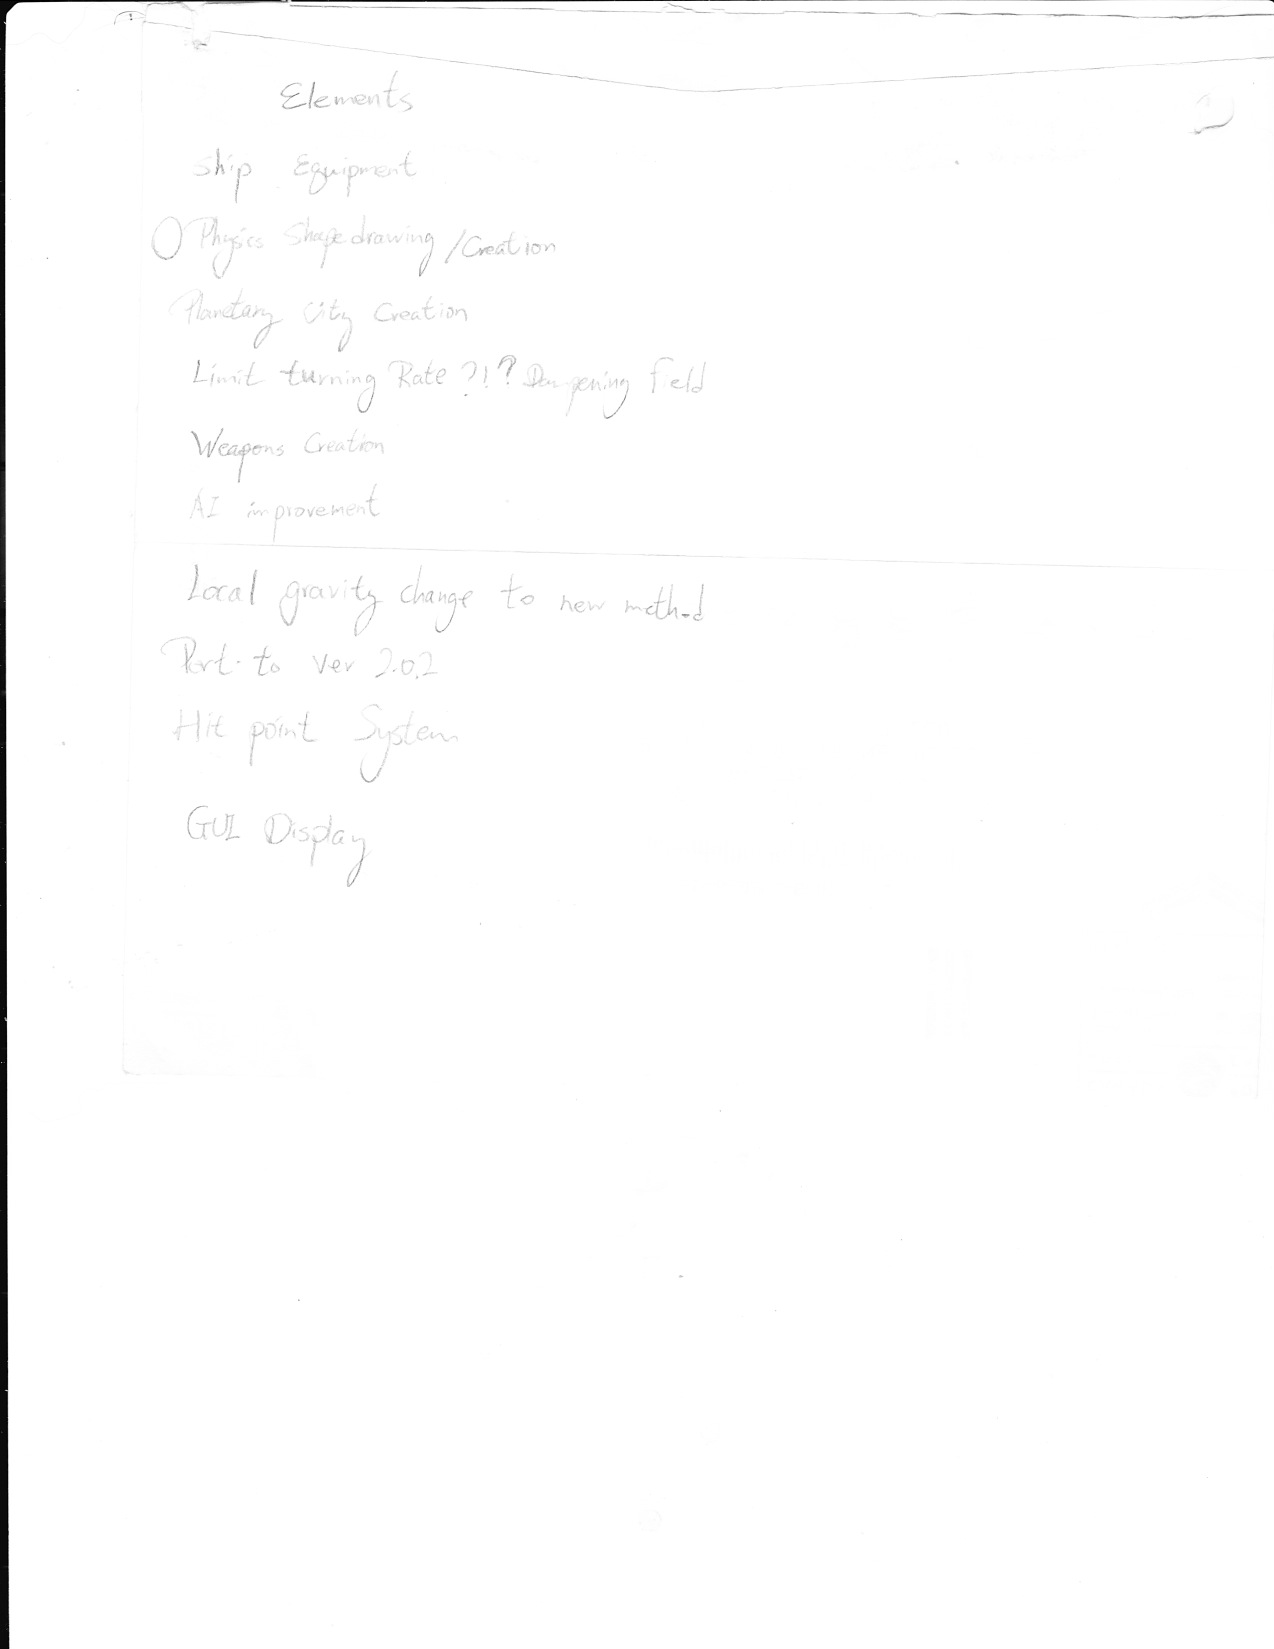 Elements
Ship Equipment
Physics Shape drawing / Creation
Planetary City Creation
Limit turning Rate ?!? Dampening field
Weapons Creation
AI improvement
Local gravity change to new method
Port to ver 2.0.2
Hit point System
GUI Display